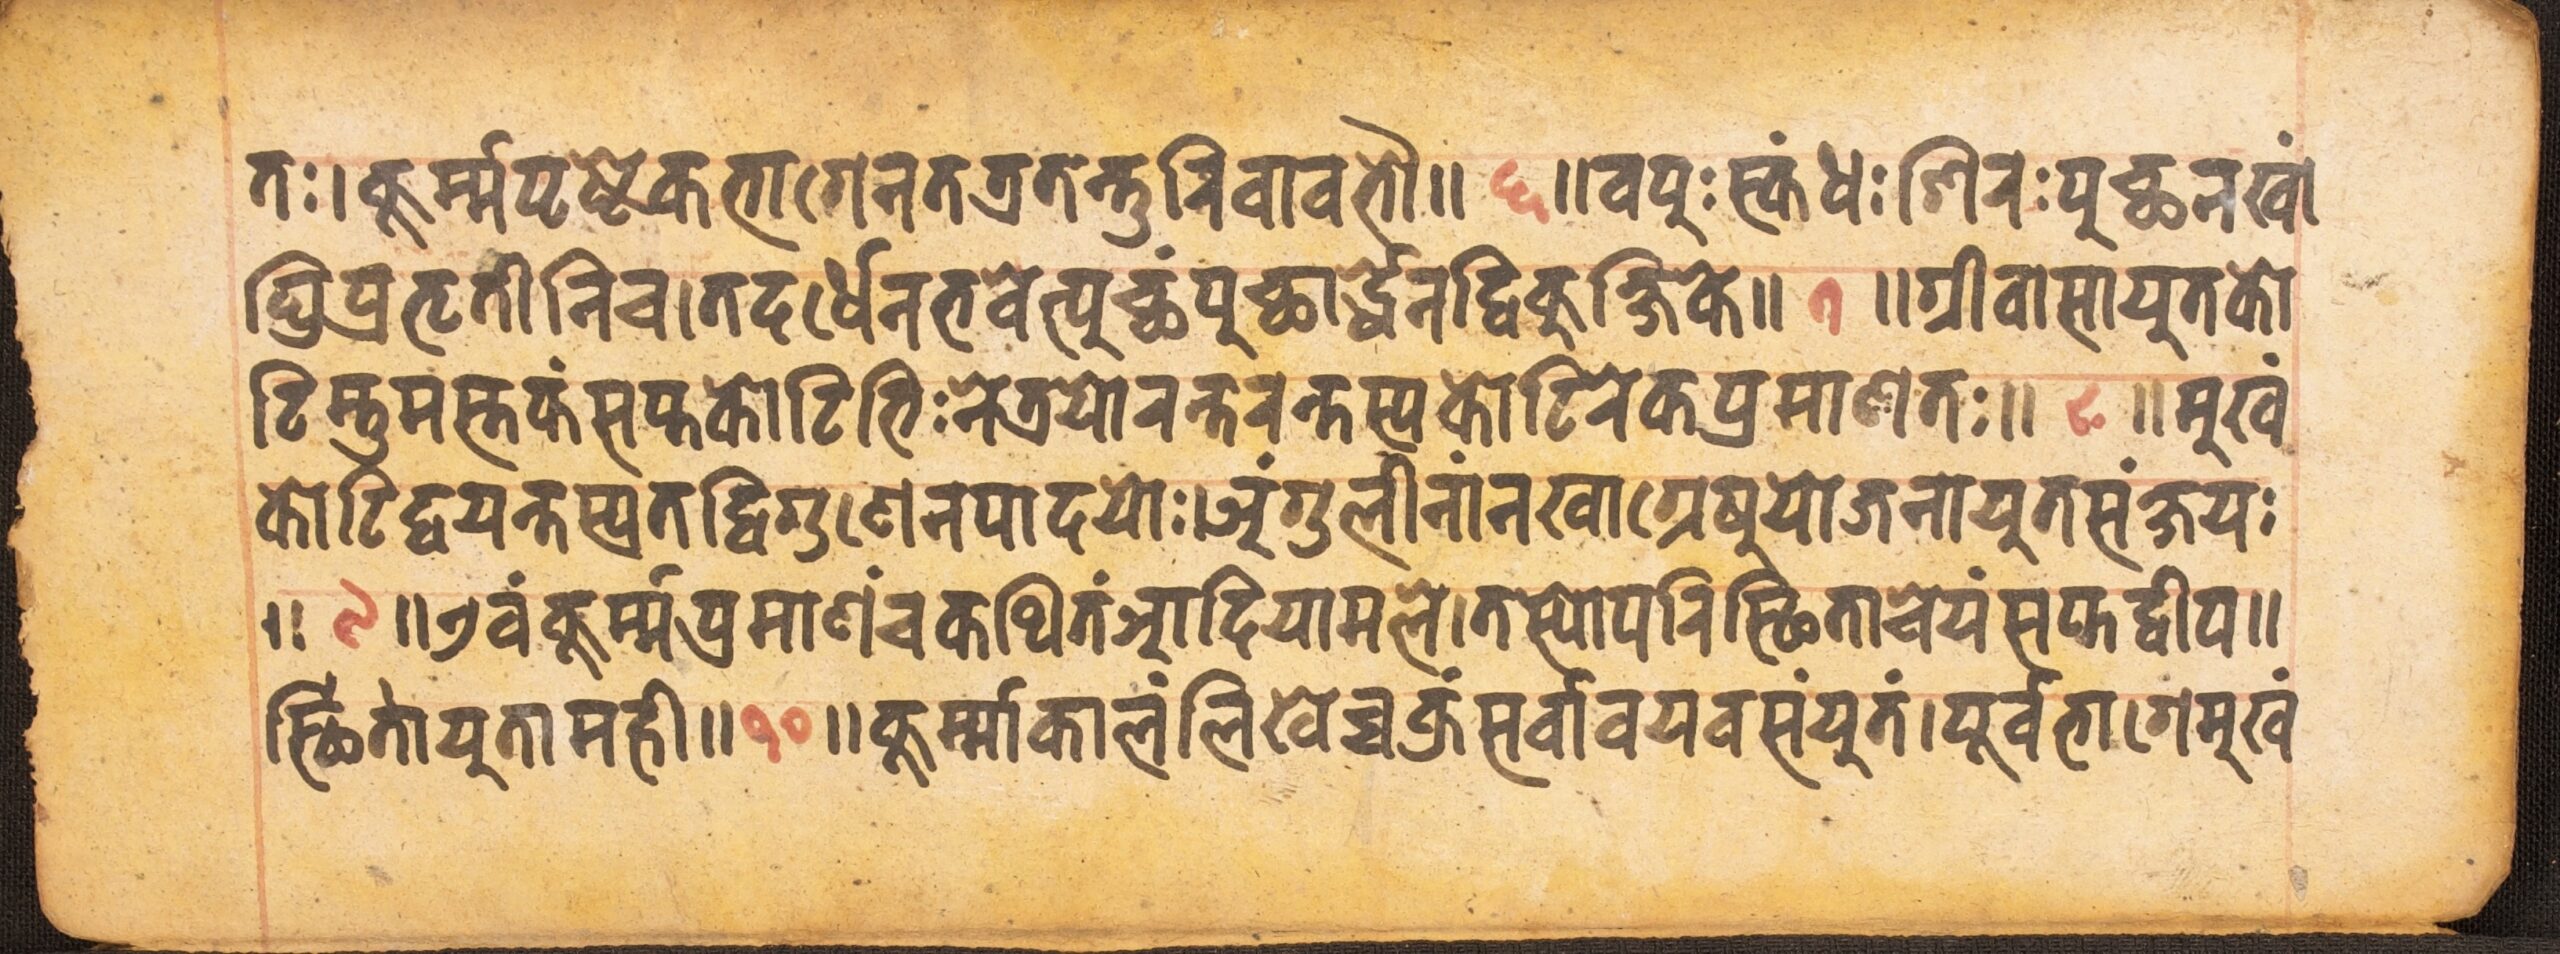 तः।कूर्म्मपृष्टैकभागेनतत्रतन्तुरिवावभौ॥६॥वपुःस्कंधःशिरःपुच्छनखां
घ्रिप्रभृतीनिच।तदर्धेनभवेत्पुच्छंपुच्छार्द्धेनद्विकुक्षिके॥७॥ग्रीवासायुतको
टिस्तुमस्तकंसप्तकोटिभिःनेत्रयोरन्तरन्तस्यकोटिरेकप्रमाणतः॥८॥मुखं
कोटिद्वयन्तस्यतद्विगुणेनपादयोः।अंगुलीनांनखाग्रेषुयोजनायुतसंक्षयः
॥९॥एवंकूर्म्मप्रमाणंचकथितंआदियामले।तस्योपरिस्थिताचेयंसप्तद्वीप॥
स्थितायुतामही॥१०॥कूर्म्माकालंलिखेच्चक्रंसर्वावयवसंयुतं।पूर्वभागेमुखं